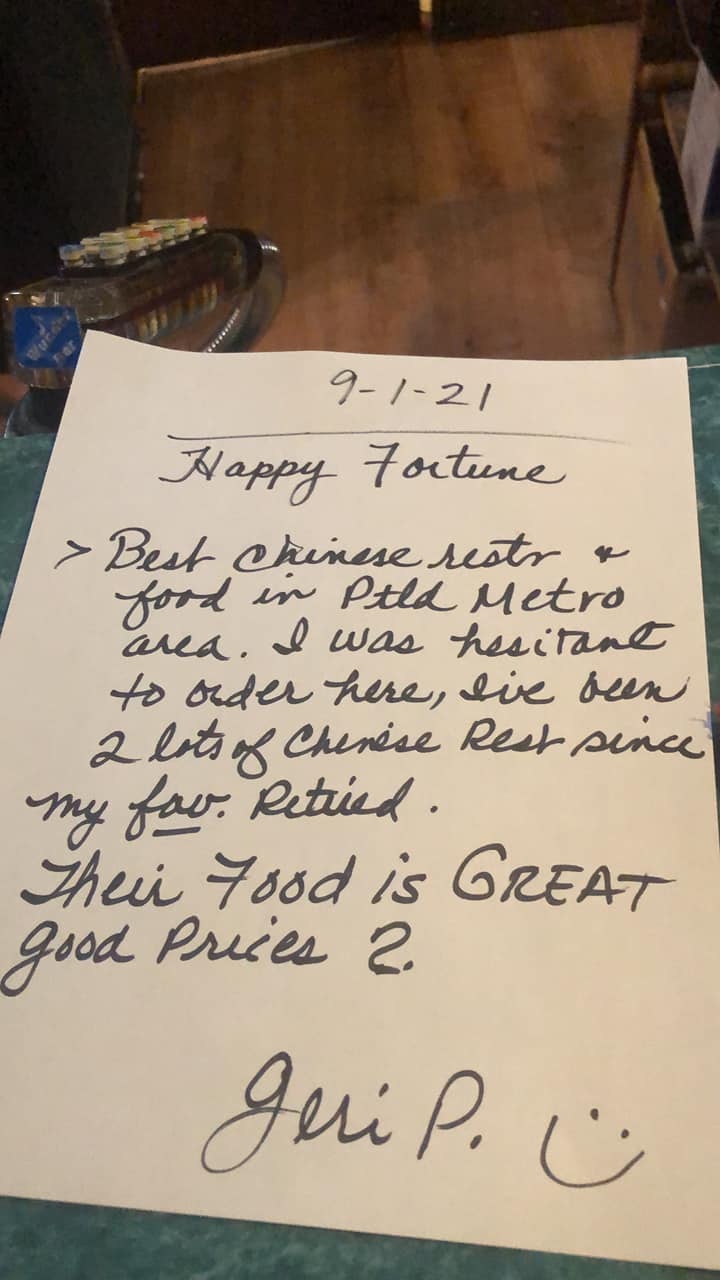 Wunder
Bar
9-1-21
Happy Fortune
> Best Chinese restr &
food in Ptld Metro
area. I was hesitant
to order here, I've been
2 lots of Chinese Rest since
my fav. Retired.
Their Food is GREAT
good Prices 2.
Geri P. :)